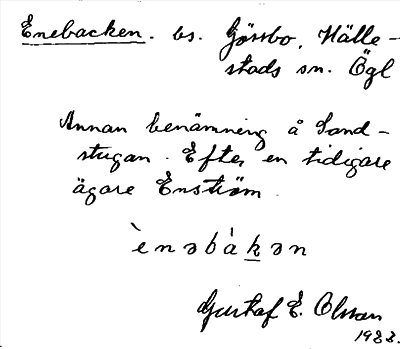 Enebacken. bs. Gössbo, Hälle-
stads sn. Ögl
Annan benämning å Sand-
stugan. Efter en tidigare
ägare Enström.
ènəbàkən
Gustaf E. Olsson
1933.